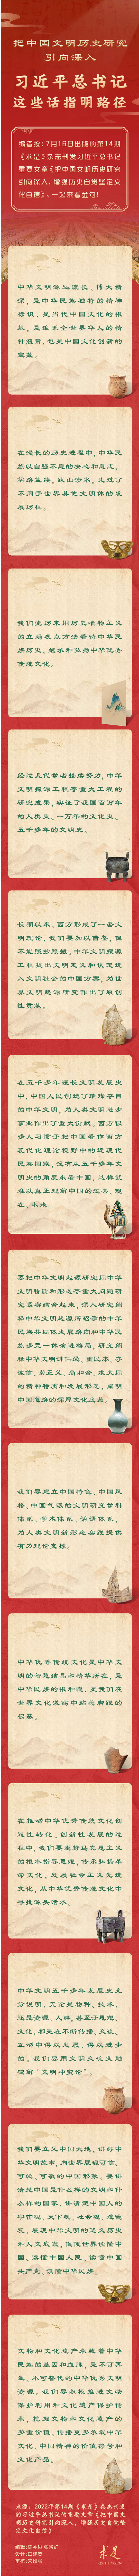 把中国文明历史研究
引向深入
习近平总书记
这些话指明路径
编者按：7月16日出版的第14期
《求是》杂志刊发习近平总书记
重要文章《把中国文明历史研究
引向深入，增强历史自觉坚定文
化自信》，一起来看金句！
中华文明源远流长、博大精
深，是中华民族独特的精神
标识，是当代中国文化的根
基，是维系全世界华人的精
神纽带，也是中国文化创新的
宝藏。
在漫长的历史进程中，中华民
族以自强不息的决心和意志，
筚路蓝缕，跋山涉水，走过了
不同于世界其他文明体的发
展历程。
我们党历来用历史唯物主义
的立场观点方法看待中华民
族历史，继承和弘扬中华优秀
传统文化。
经过几代学者接续努力，中华
文明探源工程等重大工程的
研究成果，实证了我国百万年
的人类史、一万年的文化史、
五千多年的文明史。
长期以来，西方形成了一套文
明理论，我们要加以借鉴，但
不能照抄照搬。中华文明探源
工程提出文明定义和认定进
入文明社会的中国方案，为世
界文明起源研究作出了原创
性贡献。
在五千多年漫长文明发展史
中，中国人民创造了璀璨夺目
的中华文明，为人类文明进步
事业作出了重大贡献。西方很
多人习惯于把中国看作西方
现代化理论视野中的近现代
民族国家，没有从五千多年文
明史的角度来看中国，这样就
难以真正理解中国的过去、现
在、未来。
要把中华文明起源研究同中华
文明特质和形态等重大问题研
究紧密结合起来，深入研究阐
释中华文明起源所昭示的中华
民族共同体发展路向和中华民
族多元一体演进格局，研究阐
释中华文明讲仁爱、重民本、守
诚信、崇正义、尚和合、求大同
的精神特质和发展形态，阐明
中国道路的深厚文化底蕴。
我们要建立中国特色、中国风
格、中国气派的文明研究学科
体系、学术体系、话语体系，
为人类文明新形态实践提供
有力理论支撑。
中华优秀传统文化是中华文
明的智慧结晶和精华所在，是
中华民族的根和魂，是我们在
世界文化激荡中站稳脚跟的
根基。
在推动中华优秀传统文化创
造性转化、创新性发展的过
程中，我们要坚持马克思主义
的根本指导思想，传承弘扬革
命文化，发展社会主义先进
文化，从中华优秀传统文化中
寻找源头活水。
中华文明五千多年发展史充
分说明，无论是物种、技术，
还是资源、人群，甚至于思想、
文化，都是在不断传播、交流、
互动中得以发展、得以进步
的。我们要用文明交流交融
破解“文明冲突论”。
我们要立足中国大地，讲好中
华文明故事，向世界展现可信、
可爱、可敬的中国形象。要讲
清楚中国是什么样的文明和什
么样的国家，讲清楚中国人的
宇宙观、天下观、社会观、道德
观，展现中华文明的悠久历史
和人文底蕴，促使世界读懂中
国、读懂中国人民、读懂中国
共产党、读懂中华民族。
文物和文化遗产承载着中华
民族的基因和血脉，是不可再
生、不可替代的中华优秀文明
资源。我们要积极推进文物
保护利用和文化遗产保护传
承，挖掘文物和文化遗产的
多重价值，传播更多承载中华
文化、中国精神的价值符号和
文化产品。
来源：2022年第14期《求是》杂志刊发
的习近平总书记的重要文章《把中国文
明历史研究引向深入，增强历史自觉坚
定文化自信》
求是